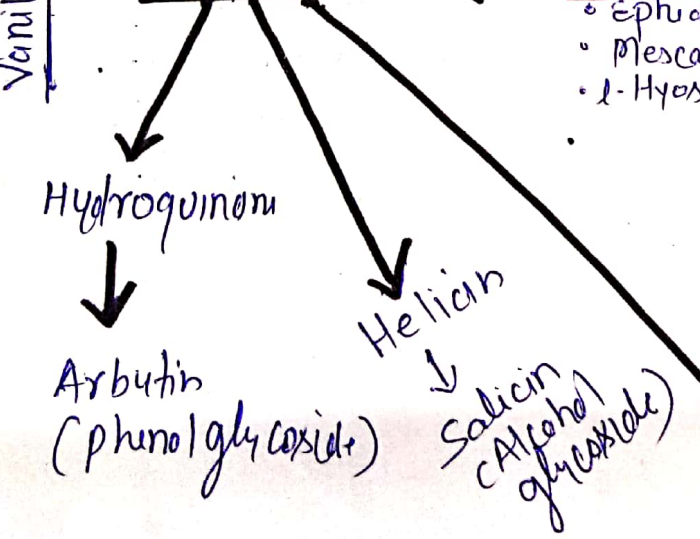 Vanil
• Ephe
• Mesca
• l-Hyos
Hydroquinone
Helicin
Arbutin
(phenol glycoside)
Salicin
(Alcohol
glycoside)